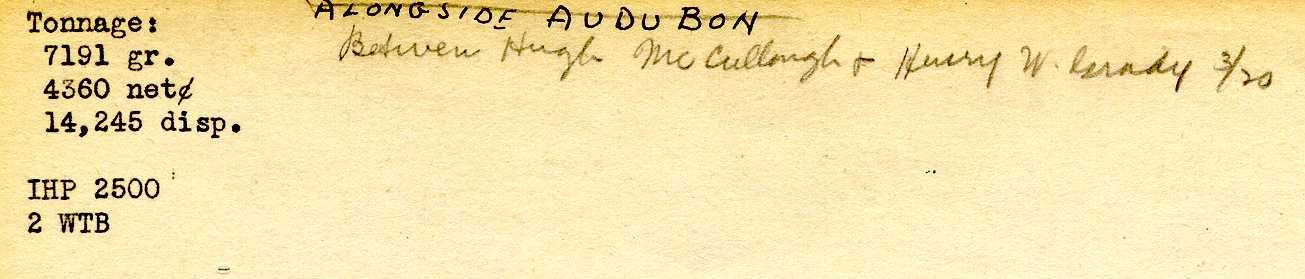 ALONGSIDE AUDUBON
Tonnage:
Between Hugh McCullough & Henry W. Grady 3/20
7191 gr.
4360 net¢
14,245 disp.
IHP 2500
2 WTB